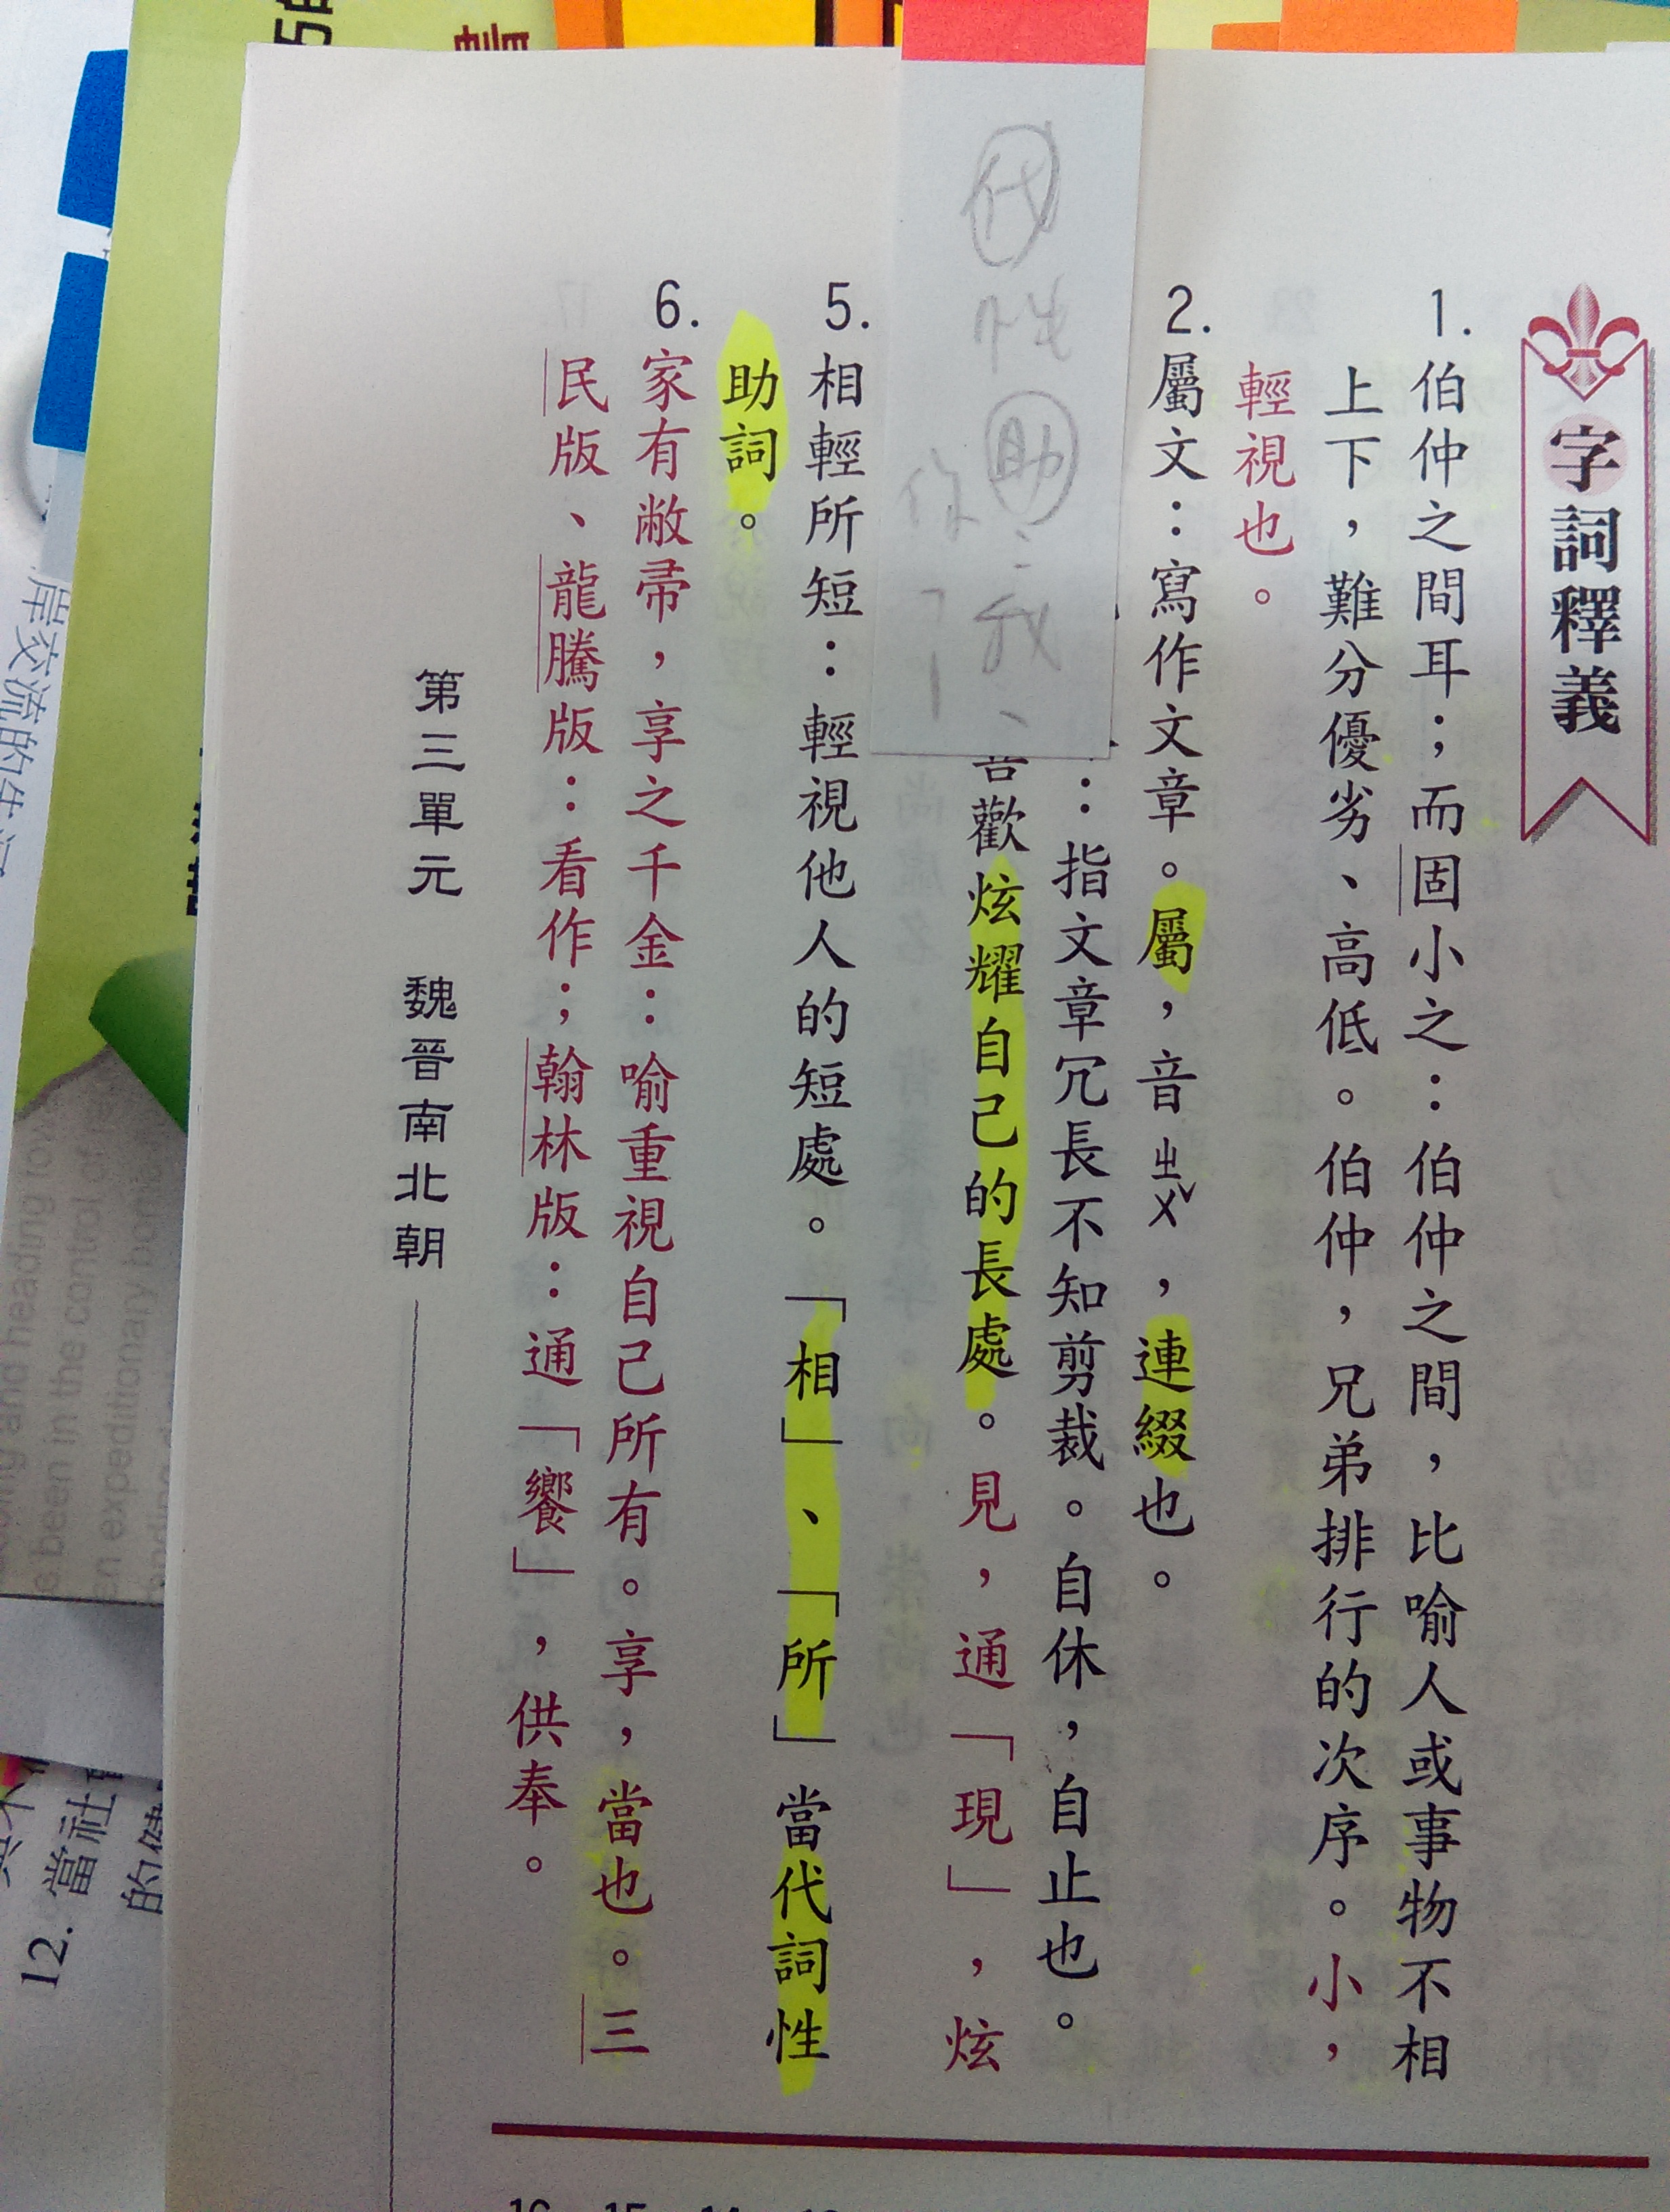 字詞釋義
1. 伯仲之間耳；而固小之：伯仲之間，比喻人或事物不相
上下，難分優劣、高低。伯仲，兄弟排行的次序。小，
輕視也。
2. 屬文：寫作文章。屬，音ㄓㄨˇ，連綴也。
：指文章冗長不知剪裁。自休，自止也。
喜歡炫耀自己的長處。見，通「現」，炫
代性助：我、
你
5. 相輕所短：輕視他人的短處。「相」、「所」當代詞性
助詞。
6. 家有敝帚，享之千金：喻重視自己所有。享，當也。三
民版、龍騰版：看作；翰林版：通「饗」，供奉。
第三單元 魏晉南北朝
岸交流的生活
heading to
been in the control of
en expeditionary
12. 當社會
的健
16 15 14